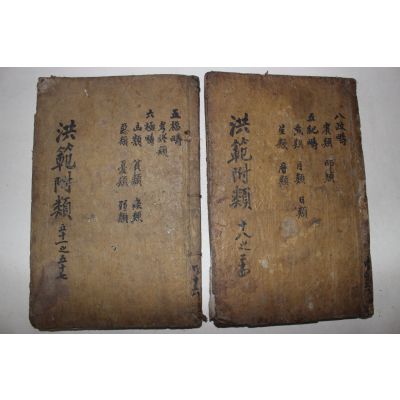 八政疇
賓類 師類
五紀疇
歲類 月類 日類
星類 曆類
洪範附類 十八之
五福疇
考終類
六極疇
凶類 貧類 疾類
惡類 憂類 弱類
洪範附類 五十一之五十七